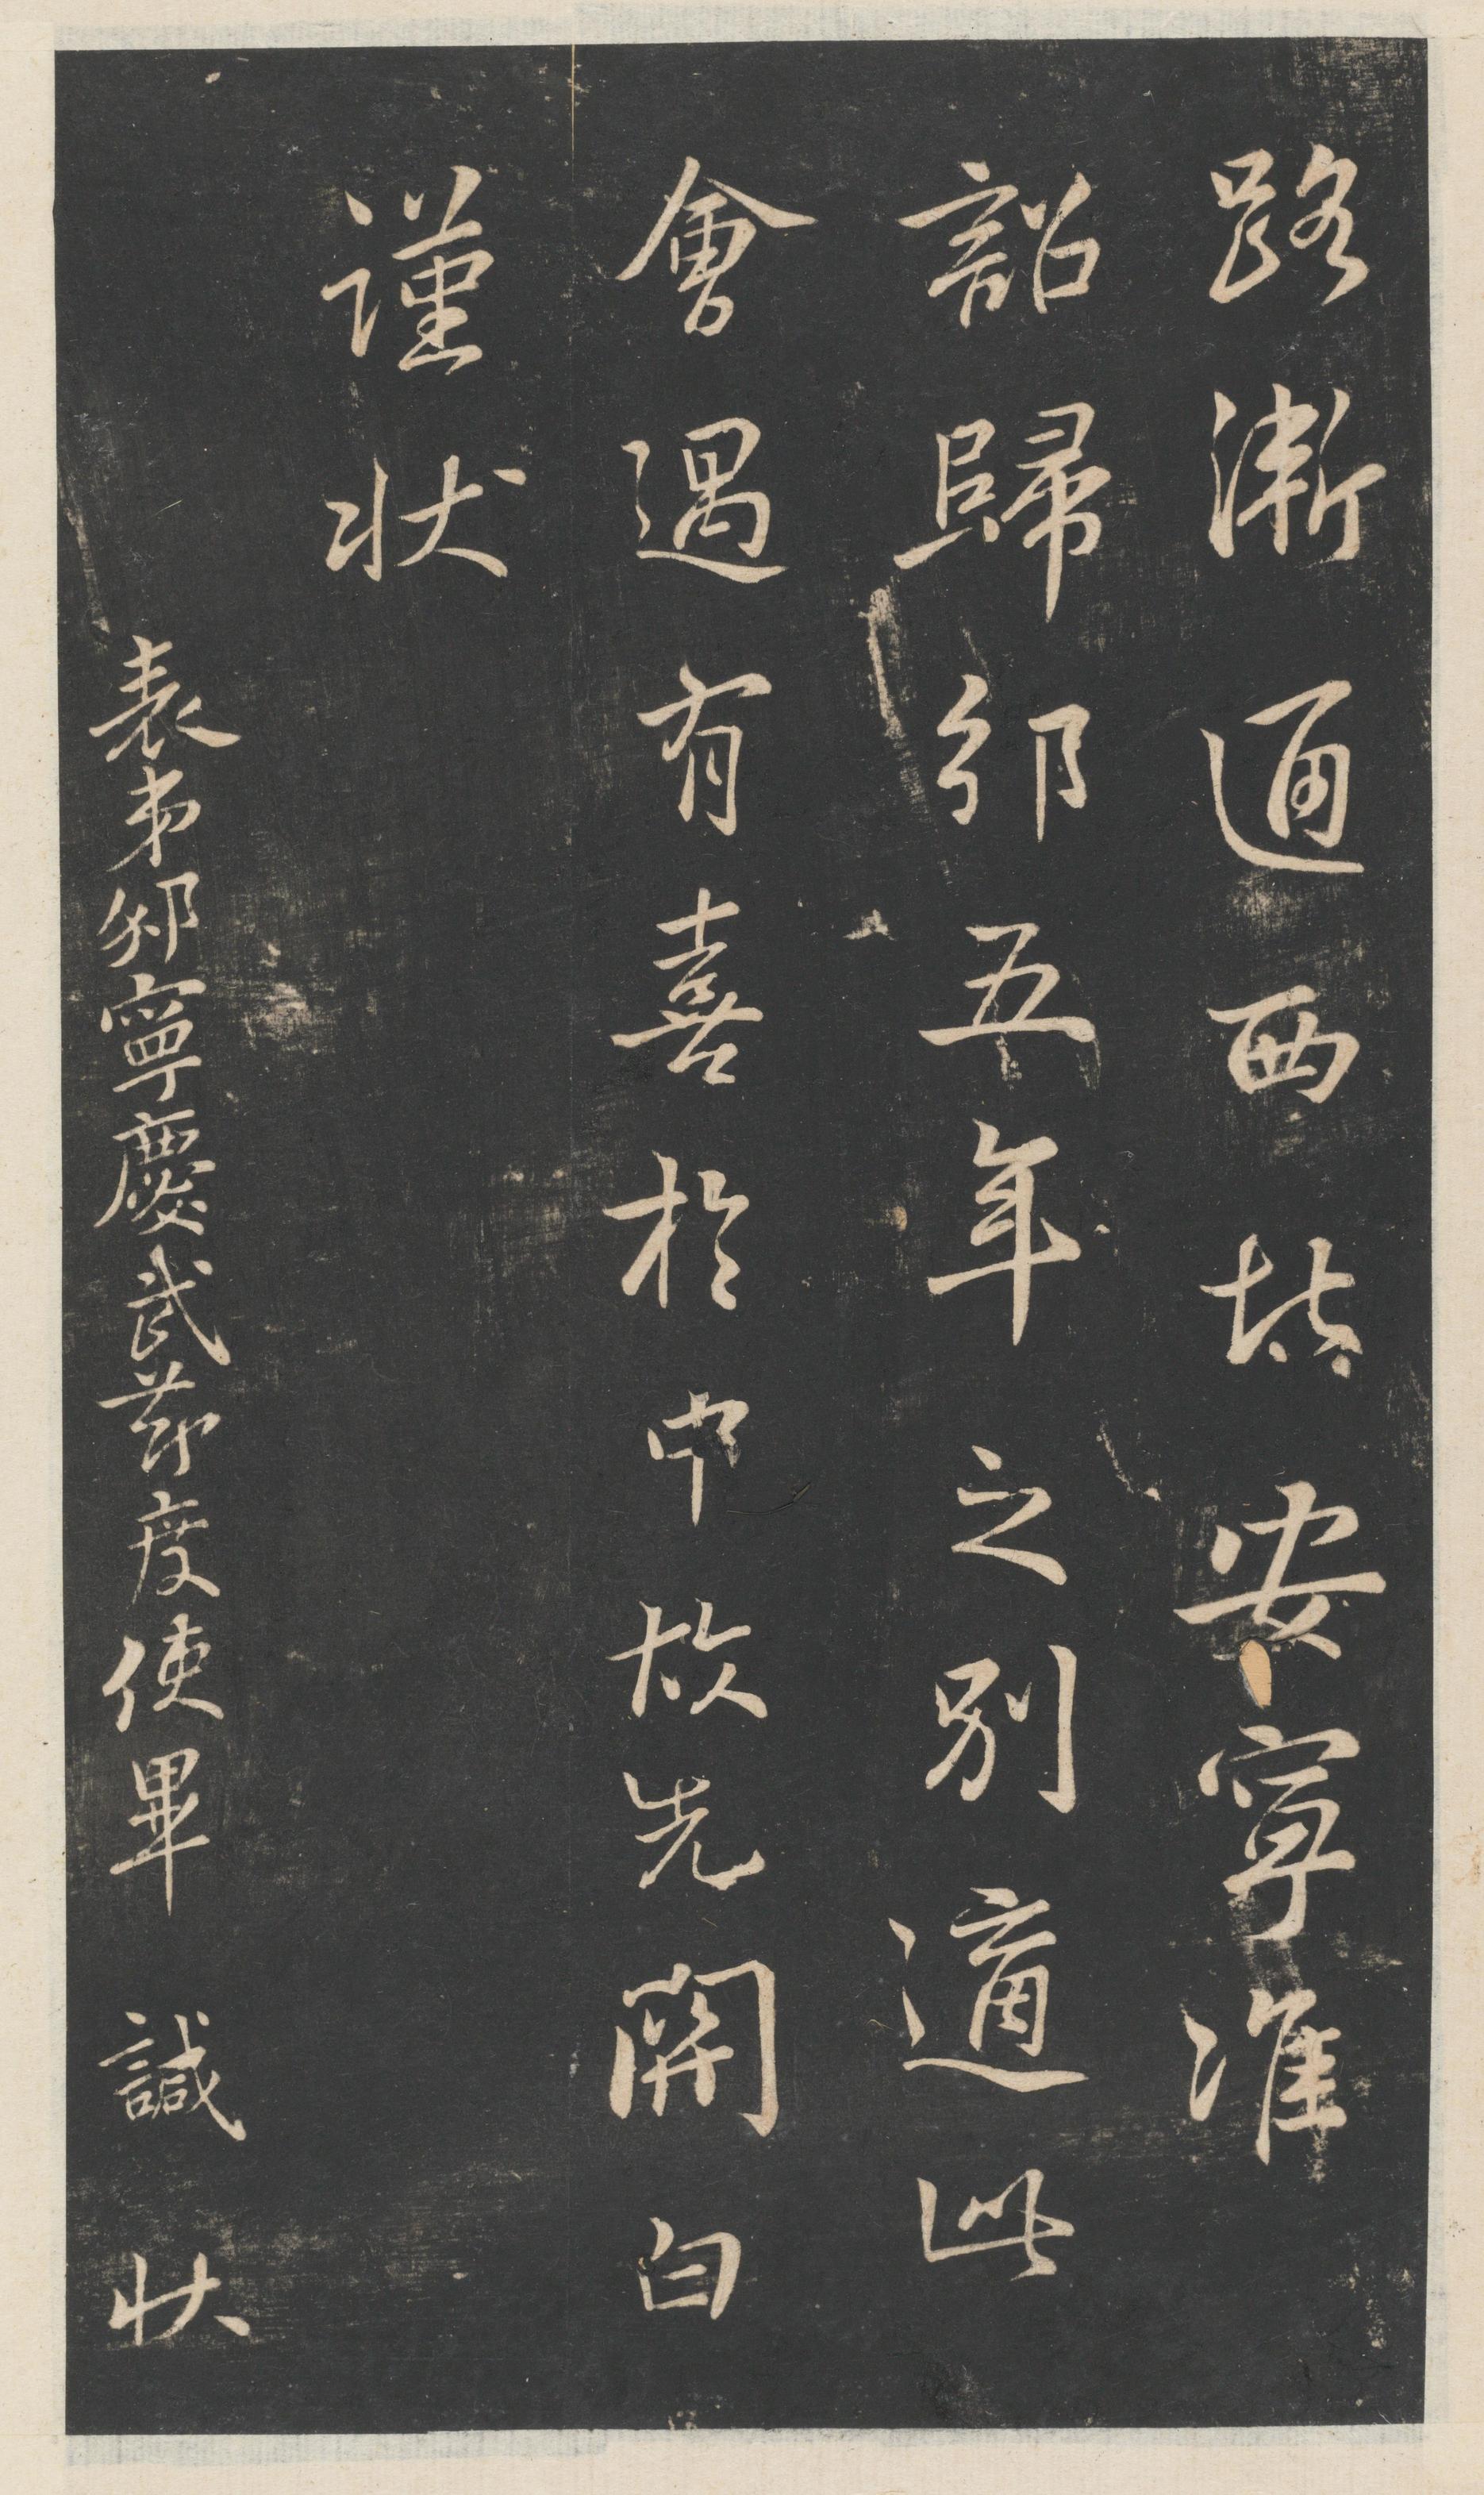 路漸通西垂安寧准
詔歸邠五年之別適此
會遇有喜於中故先開白
謹状
表弟邠寧慶武節度使畢諴状